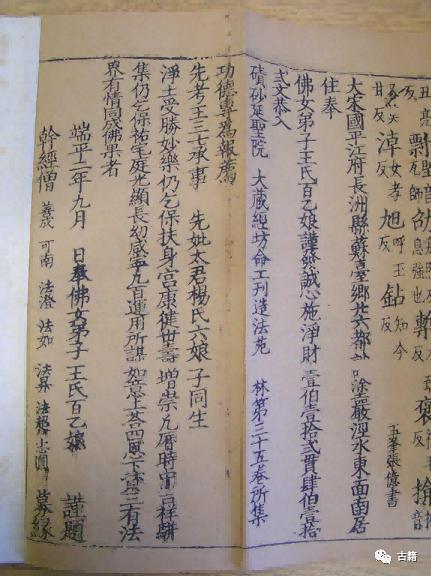 丑亮反 剽 劭 褒 揄 音
淖 女孝反 旭 呼玉反 鉆 知今反
五峯張億書
大宋國平江府長洲縣蘇臺鄉廿六都 塗嚴涇水東面南居
住奉
佛女弟子王氏百乙娘謹懇誠心施淨財 壹伯壹拾弍貫肆伯壹拾
弍文恭入
磧砂延聖院 大藏經坊命工刊造法苑 林第三十五卷所集
功德專為報薦
先考王三七承事 先妣太君楊氏六娘子同生
淨土受勝妙樂仍乞保扶身宮康健世壽 增崇凡曆時中吉祥駢
集仍乞保祐宅庭光顯長幼咸寧凡百運用所謀 如意上荅四恩下資三有法
界有情同成佛果者
端平二年九月 日奉佛女弟子王氏百乙娘 謹題
幹經僧 善成 可南 法澄 法如 法昇 法超 志圓 募緣
古籍